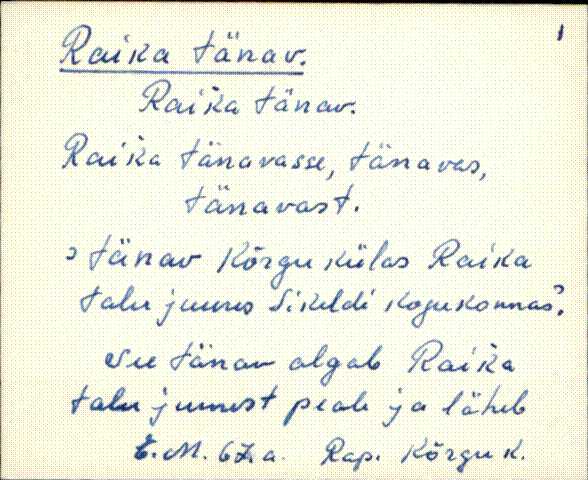 1
Raika tänav.
Raika tänav.
Raika tänavasse, tänavas,
tänavast.
? tänav Kõrgu külas Raika
talu juures Sikeldi kogukonnas?
See tänav algab Raika
talu juurest peale ja läheb
E.M. 67.a. Rap. Kõrgu k.